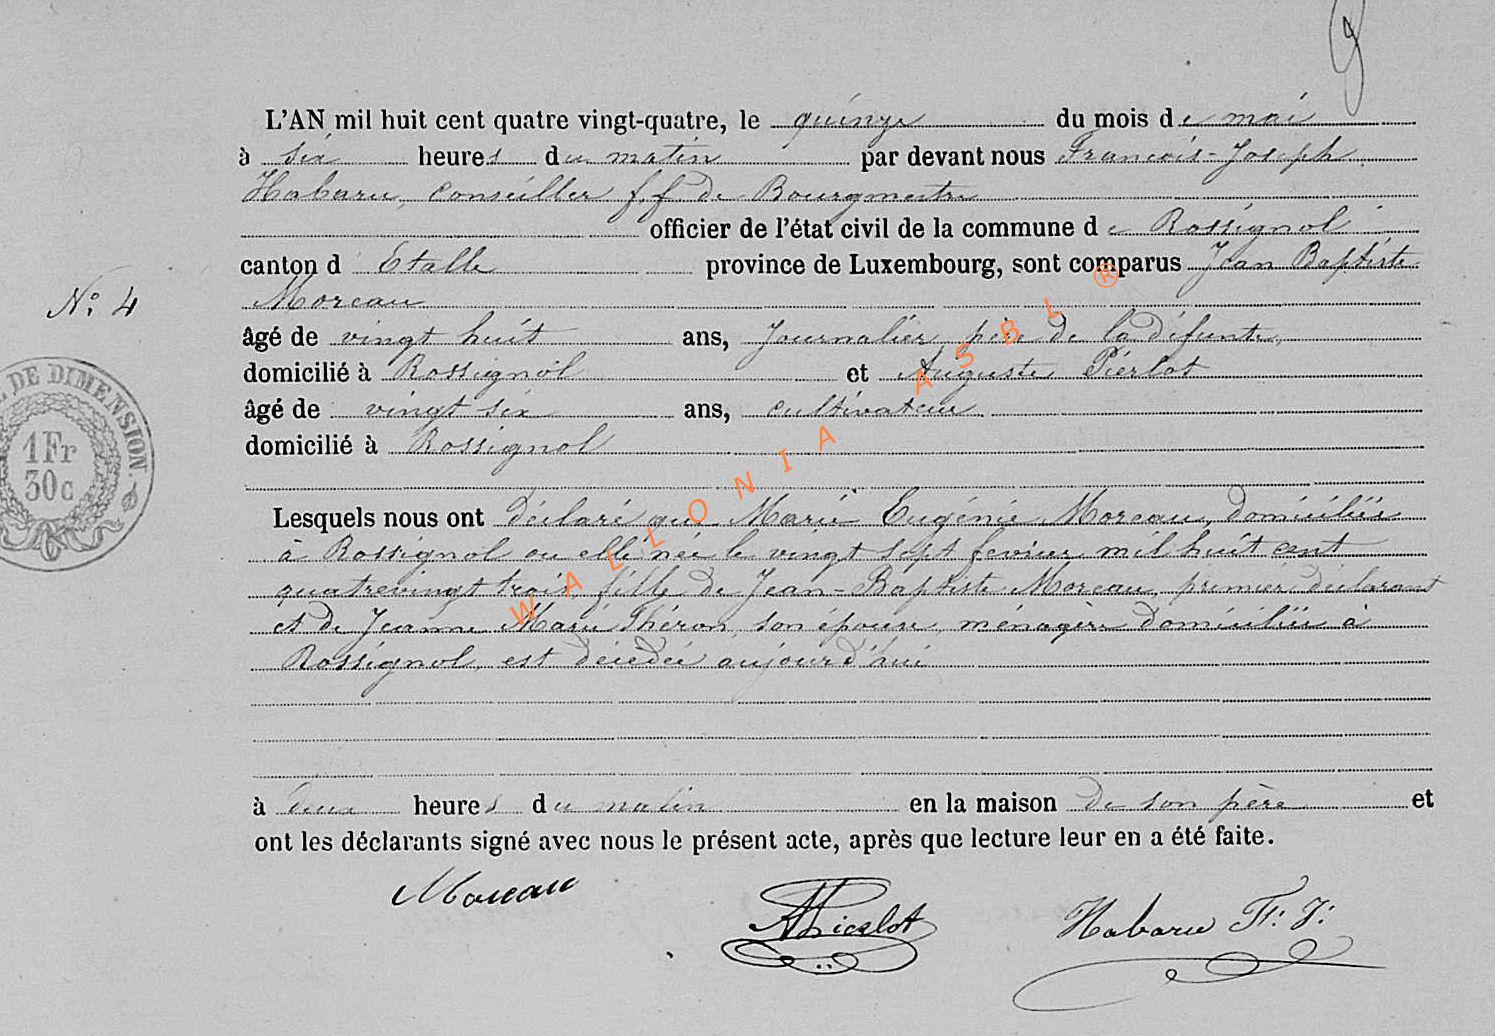 L'AN mil huit cent quatre vingt-quatre, le quinze du mois de mai
à six heures du matin par devant nous François-Joseph
Habaru, Conseiller f.f. de Bourgmestre
officier de l'état civil de la commune de Rossignol
canton d'Etalle province de Luxembourg, sont comparus Jean Baptiste
Moreau
N° 4
âgé de vingt huit ans, Journalier, père de la défunte,
domicilié à Rossignol et Auguste Pierlot
âgé de vingt six ans, cultivateur
domicilié à Rossignol
DE DIMENSION.
1 Fr
30 c
Lesquels nous ont déclaré que Marie Eugénie Moreau, domiciliée
à Rossignol ou elle née le vingt sept fevrier mil huit cent
quatrevingt trois, fille de Jean-Baptiste Moreau, premier déclarant
et de Jeanne Marie Théron, son épouse, ménagère domiciliée à
Rossignol, est décédée aujourd'hui
à deux heures du matin en la maison de son père et
ont les déclarants signé avec nous le présent acte, après que lecture leur en a été faite.
Moreau
APierlot
Habaru F: J:
WALLONIA ASBL ®